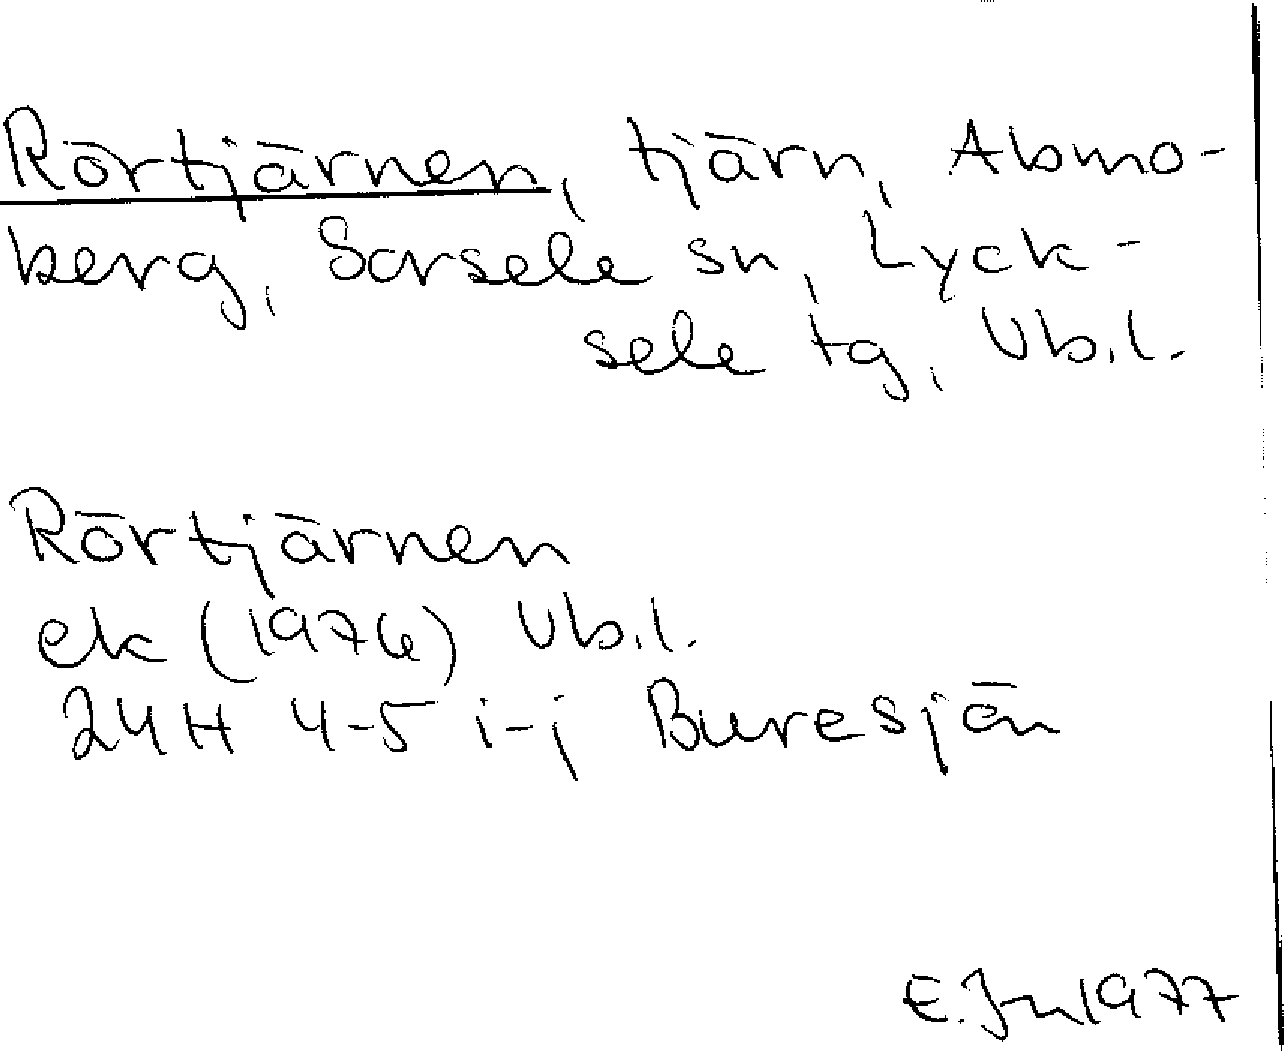 Rörtjärnen, tjärn, Abmo-
berg, Sorsele sn, Lyck-
sele tg, Vb.l.
Rörtjärnen
ek (1976) Vb.l.
24H 4-5 i-j Buresjön
E. 1977